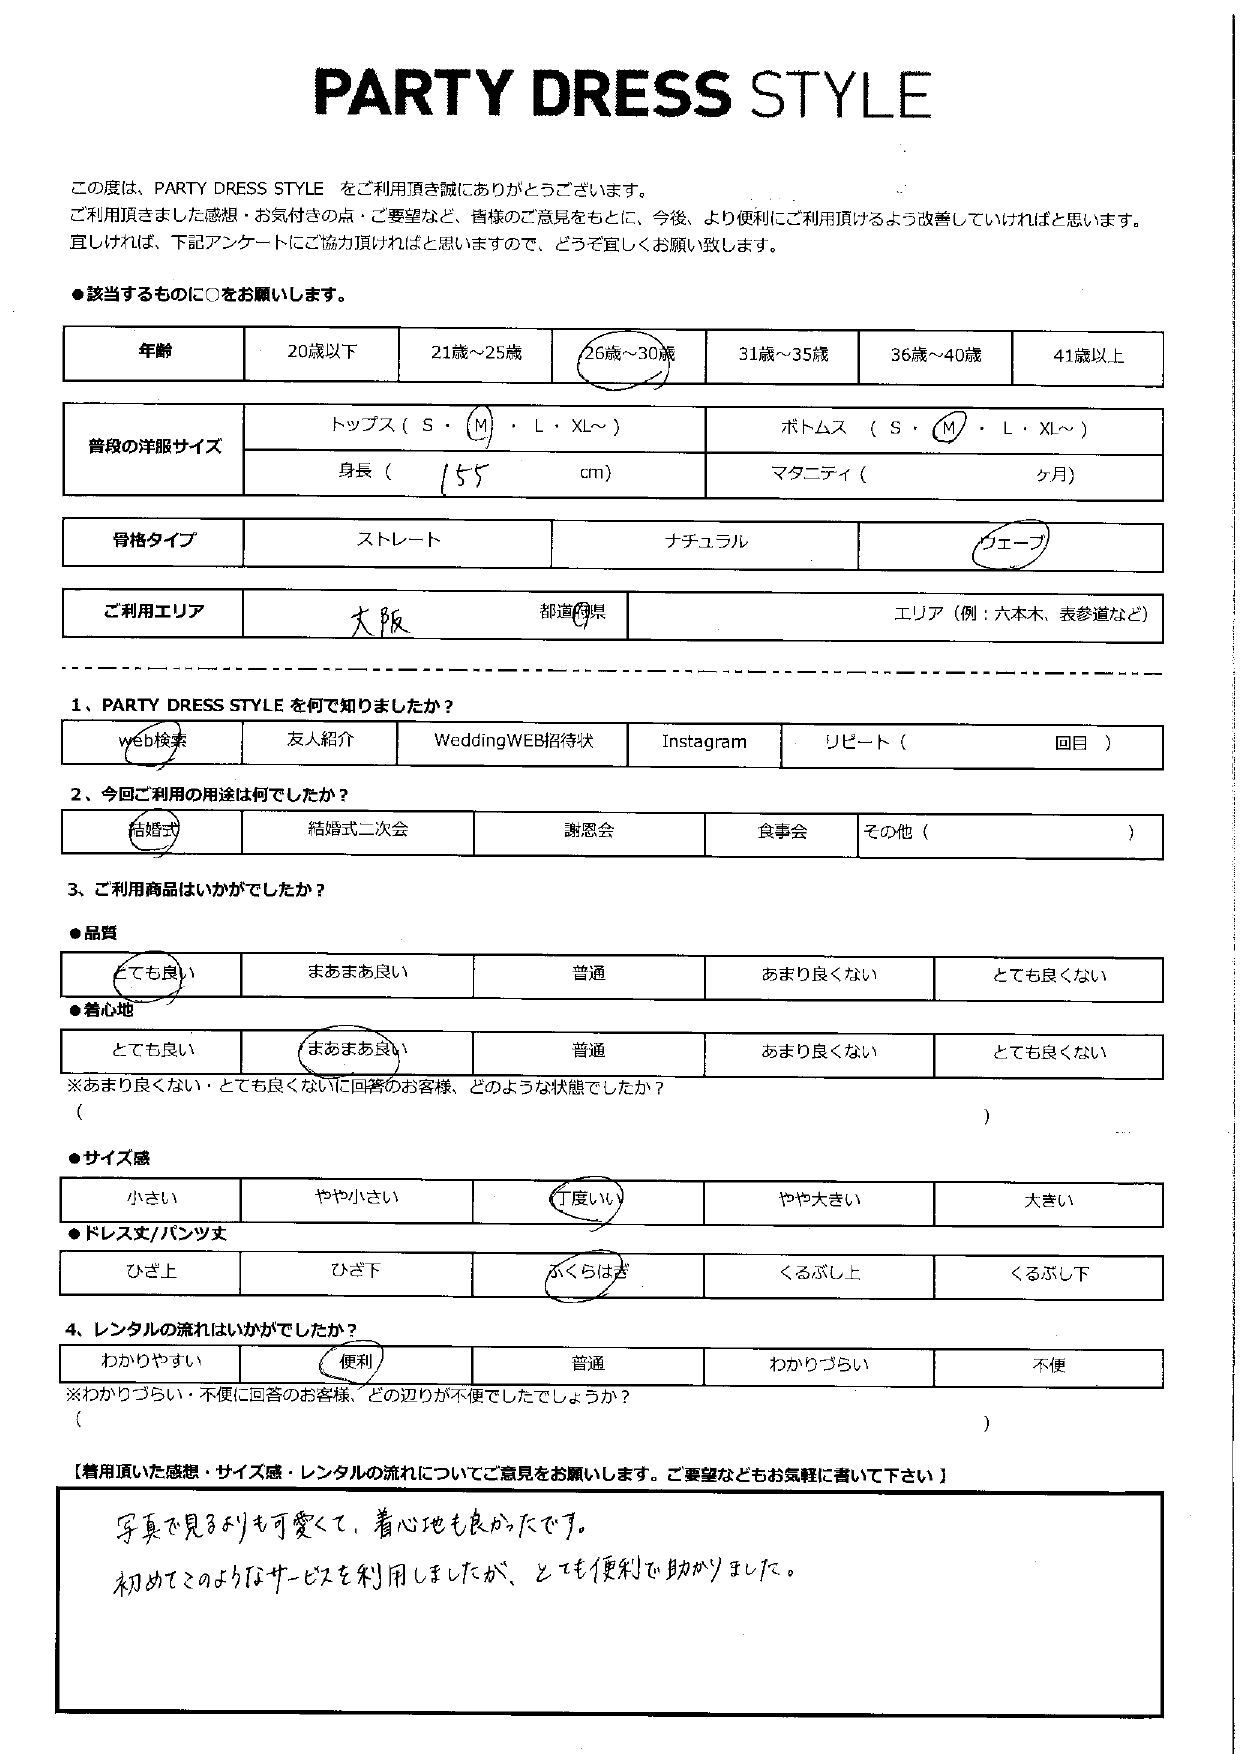 PARTY DRESS STYLE
この度は、PARTY DRESS STYLE　をご利用頂き誠にありがとうございます。
ご利用頂きました感想・お気付きの点・ご要望など、皆様のご意見をもとに、今後、より便利にご利用頂けるよう改善していければと思います。
宜しければ、下記アンケートにご協力頂ければと思いますので、どうぞ宜しくお願い致します。
●該当するものに○をお願いします。
年齢 20歳以下 21歳～25歳 26歳～30歳 31歳～35歳 36歳～40歳 41歳以上
普段の洋服サイズ トップス ( S ・ M ・ L ・ XL～ ) ボトムス ( S ・ M ・ L ・ XL～ )
身長 ( 155 cm) マタニティ ( ヶ月)
骨格タイプ ストレート ナチュラル ウェーブ
ご利用エリア 大阪 都道府県 エリア（例：六本木、表参道など）
1、PARTY DRESS STYLE を何で知りましたか？
web検索 友人紹介 WeddingWEB招待状 Instagram リピート ( 回目 )
2、今回ご利用の用途は何でしたか？
結婚式 結婚式二次会 謝恩会 食事会 その他 ( )
3、ご利用商品はいかがでしたか？
●品質
とても良い まあまあ良い 普通 あまり良くない とても良くない
●着心地
とても良い まあまあ良い 普通 あまり良くない とても良くない
※あまり良くない・とても良くないに回答のお客様、どのような状態でしたか？
( )
●サイズ感
小さい やや小さい 丁度いい やや大きい 大きい
●ドレス丈/パンツ丈
ひざ上 ひざ下 ふくらはぎ くるぶし上 くるぶし下
4、レンタルの流れはいかがでしたか？
わかりやすい 便利 普通 わかりづらい 不便
※わかりづらい・不便に回答のお客様、どの辺りが不便でしたでしょうか？
( )
【着用頂いた感想・サイズ感・レンタルの流れについてご意見をお願いします。ご要望などもお気軽に書いて下さい 】
写真で見るよりも可愛くて、着心地も良かったです。
初めてこのようなサービスを利用しましたが、とても便利で助かりました。